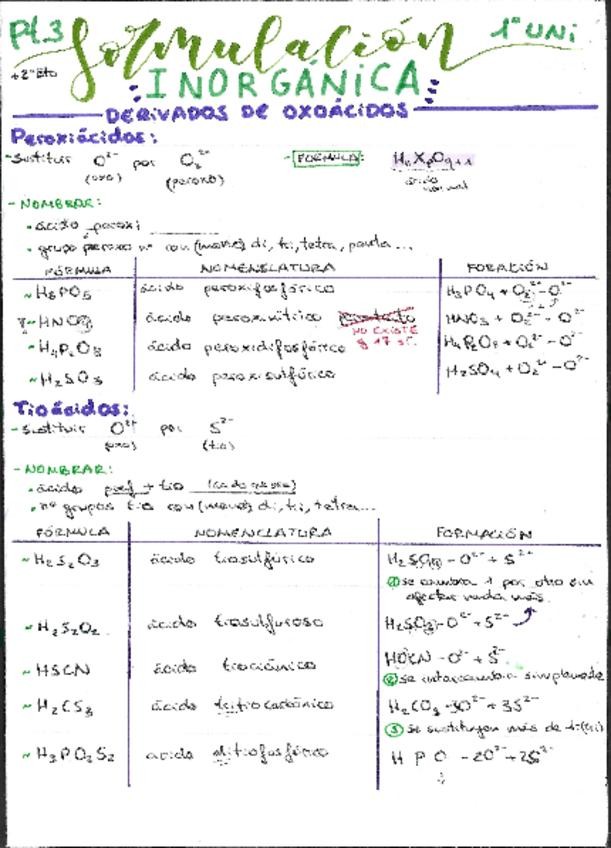 Pt.3 formulación 1º UNI
+2º Bto
INORGÁNICA
DERIVADOS DE OXOÁCIDOS
Peroxiácidos:
- Sustituir O²⁻ por O₂²⁻ - FÓRMULA:
(oxo) (peroxo) ácido normal
- NOMBRAR:
• ácido peroxi
• grupo peroxo nº con (mono) di, tri, tetra, penta...
FÓRMULA NOMENCLATURA FORACIÓN
~ H₃PO₅ ácido peroxifosfórico H₃PO₄ + O₂²⁻ - O²⁻
HNO ácido peroxinítrico HNO₃ + O₂²⁻ - O²⁻
NO EXISTE
~ H₄P₂O₈ ácido peroxidifosfórico H₄P₂O₇ + O₂²⁻ - O²⁻
~ H₂SO₅ ácido peroxisulfúrico H₂SO₄ + O₂²⁻ - O²⁻
Tioácidos:
- Sustituir O²⁻ por S²⁻
(oxo) (tio)
- NOMBRAR:
• ácido pref + tio
• nº grupos tio con (mono), di, tri, tetra...
FÓRMULA NOMENCLATURA FORMACIÓN
~ H₂S₂O₃ ácido tiosulfúrico - O²⁻ + S²⁻
① se cambia 1 por otro sin
afectar nada más.
~ H₂S₂O₂ ácido tiosulfuroso - O²⁻ + S²⁻
~ HSCN ácido tiociánico HOCN - O²⁻ + S²⁻
②se intercambia simplemente
~ H₂CS₃ ácido tritiocarbónico H₂CO₃ - 3O²⁻ + 3S²⁻
③ se sustituyen más de 1
~ H₃PO₂S₂ ácido ditiofosfórico H P O - 2O²⁻ + 2S²⁻